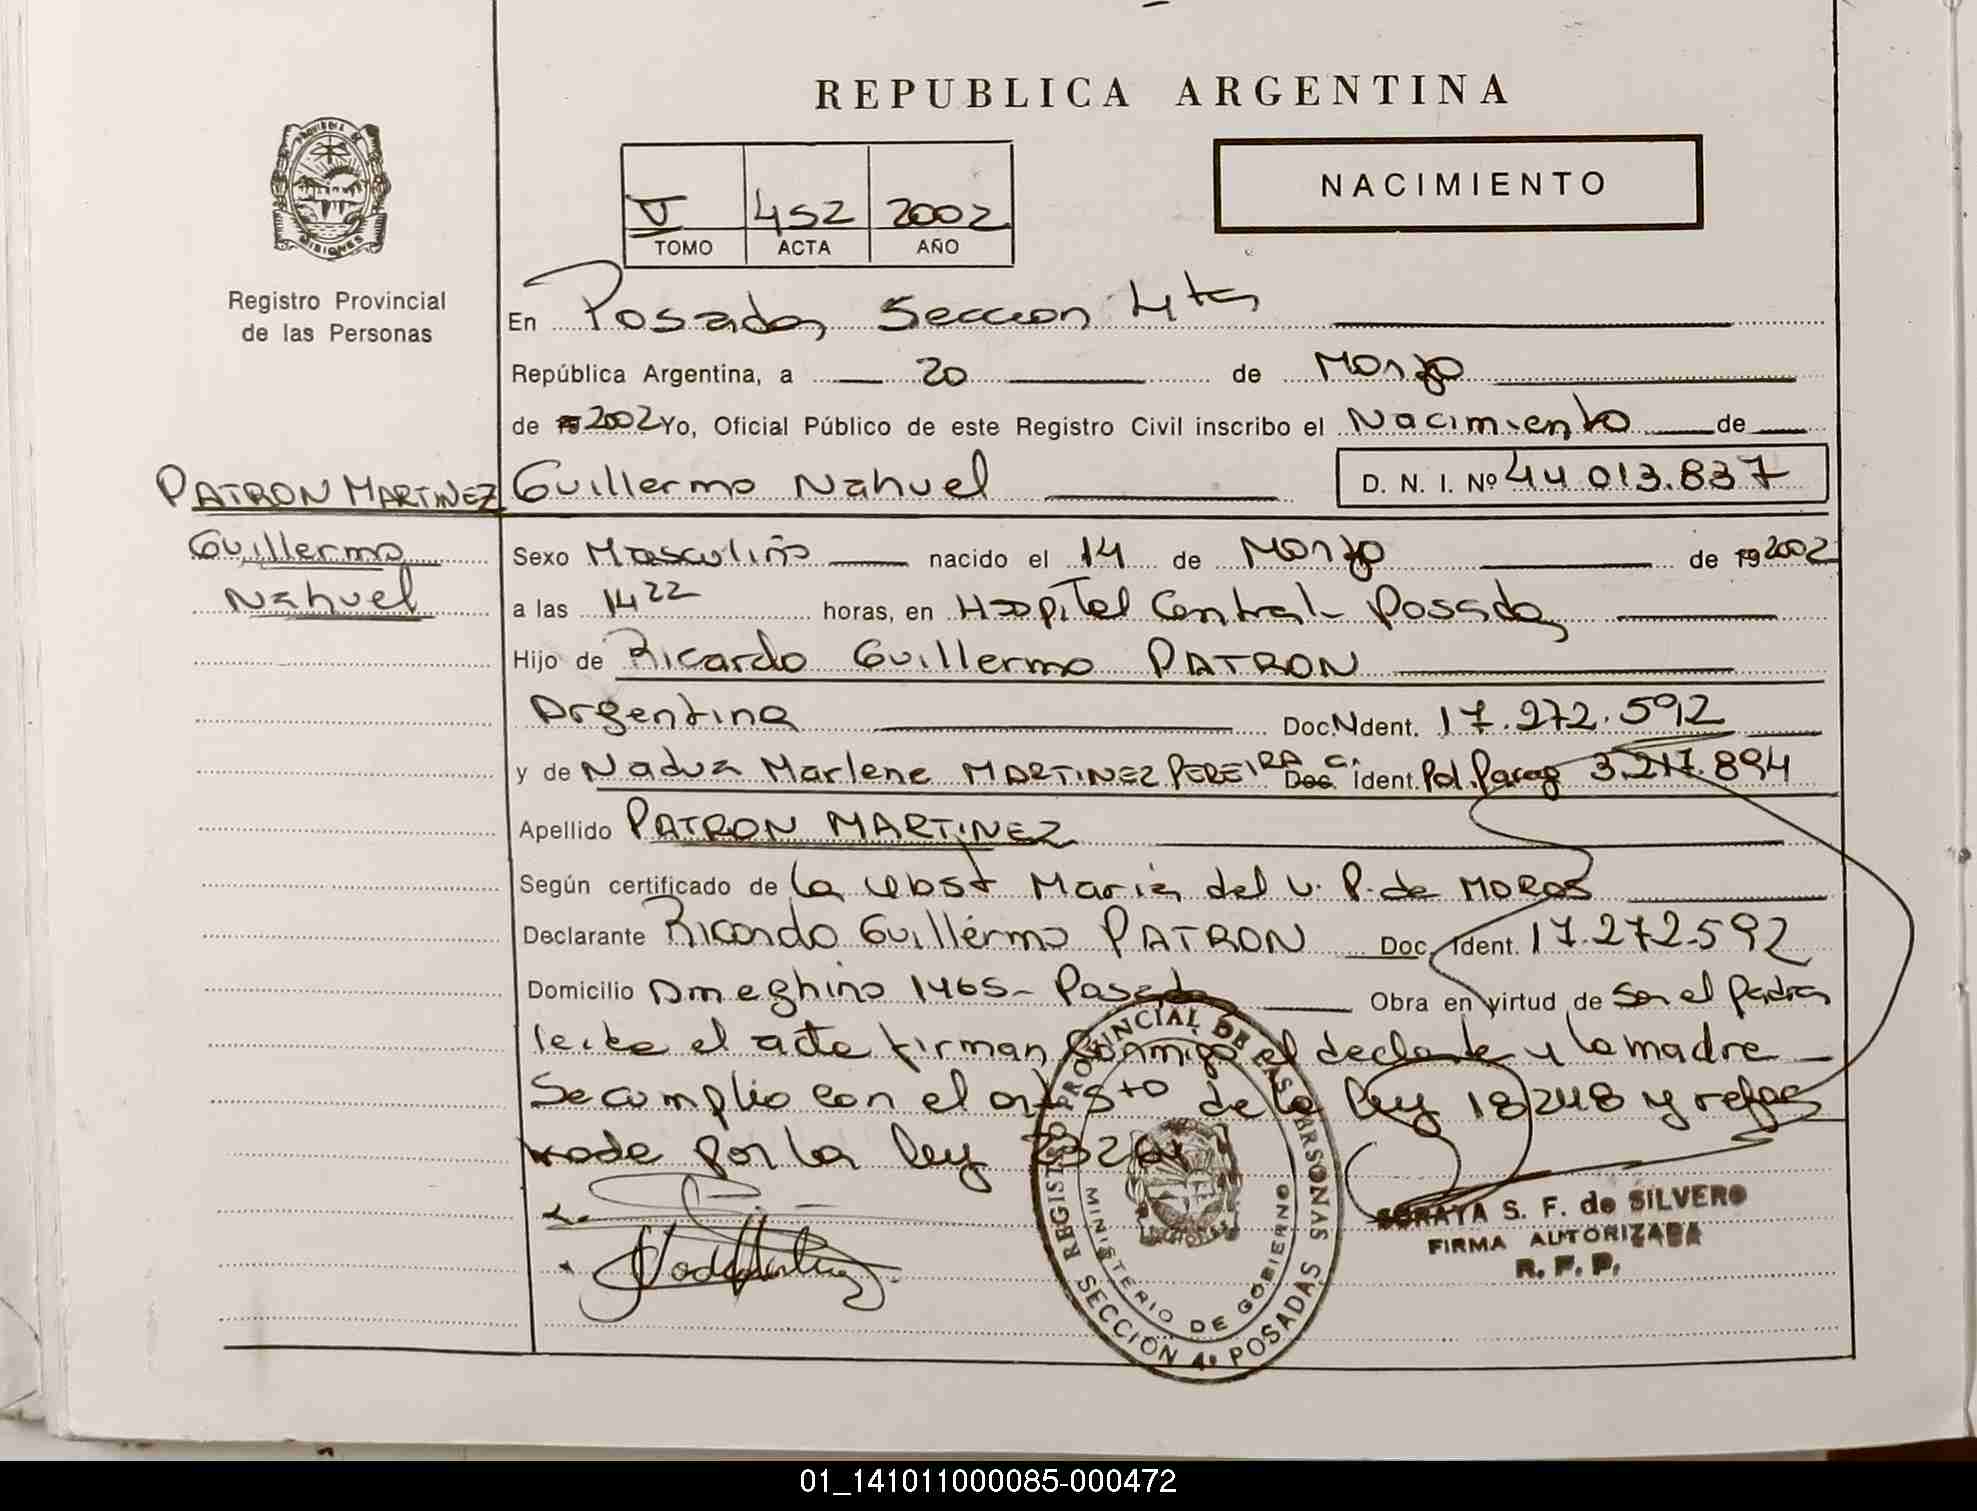 REPUBLICA ARGENTINA
PROVINCIA DE
MISIONES
Registro Provincial
de las Personas
V 452 2002
TOMO ACTA AÑO
NACIMIENTO
En Posadas Seccion 4ta
República Argentina, a 20 de Marzo
de 2002 Yo, Oficial Público de este Registro Civil inscribo el Nacimiento de
PATRON MARTINEZ
Guillermo
Nahuel
Guillermo Nahuel D. N. I. Nº 44.013.837
Sexo Masculino nacido el 14 de Marzo de 19 2002
a las 14 22 horas, en Hospital Central - Posadas
Hijo de Ricardo Guillermo PATRON
Argentina Doc.N Ident. 17.272.592
y de Nadua Marlene MARTINEZ PEREIRA C. Doc. Ident. Pol. Parag 3.217.894
Apellido PATRON MARTINEZ
Según certificado de la Obst Maria del V. P. de MORAS
Declarante Ricardo Guillermo PATRON Doc. Ident. 17.272.592
Domicilio Ameghino 1465 - Posadas Obra en virtud de Ser el padre
leida el acta firman conmigo el declante y la madre
Se cumplio con el art 5to de la ley 18248 y refor
mada por la ley
REGISTRO PROVINCIAL DE LAS PERSONAS
MINISTERIO DE GOBIERNO
SECCIÓN 4ª POSADAS
SORAYA S. F. de SILVERO
FIRMA AUTORIZADA
R. P. P.
01_141011000085-000472